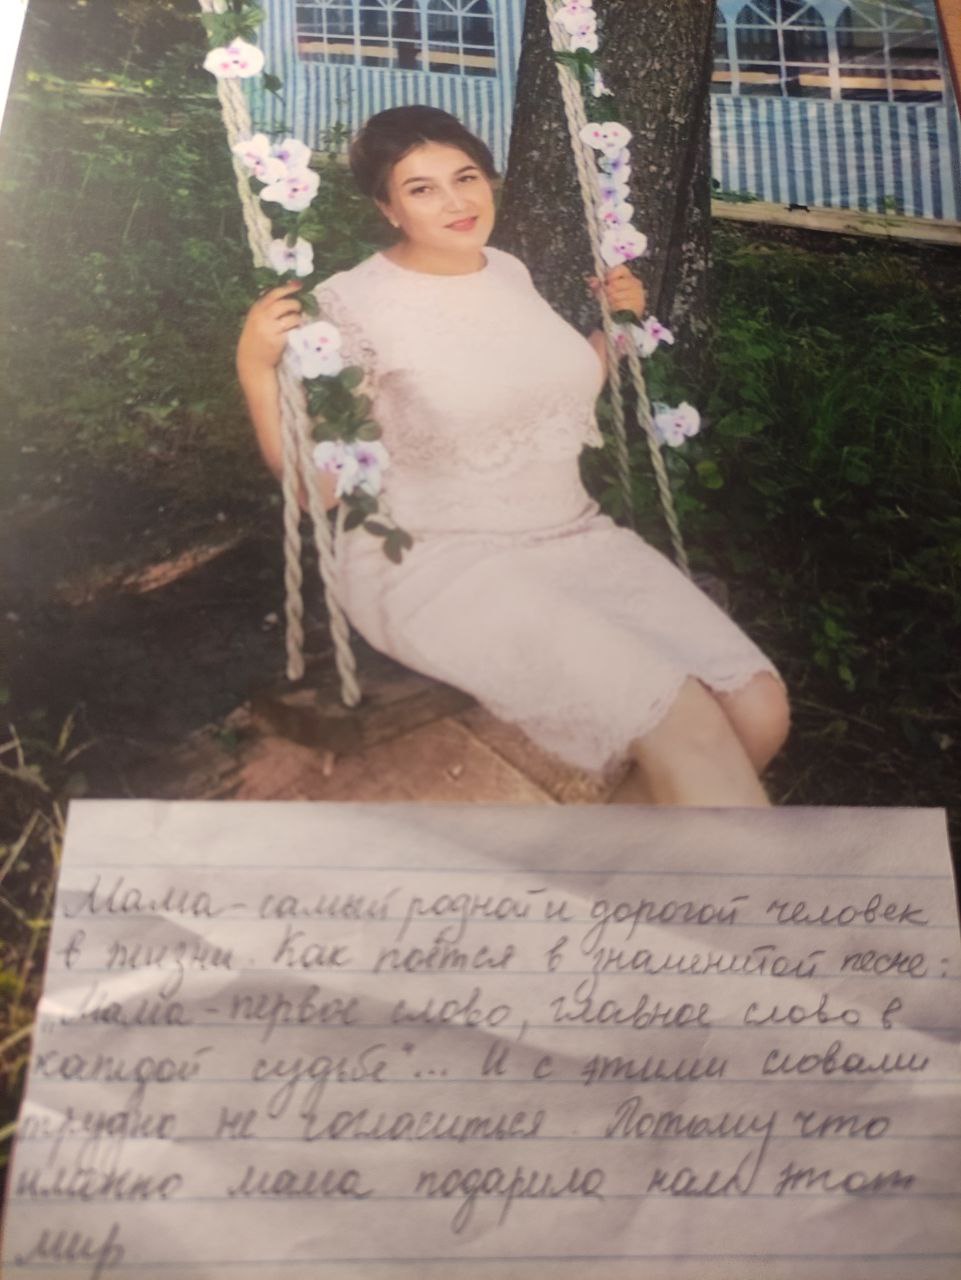 Мама - самый родной и дорогой человек
в жизни. Как поётся в знаменитой песне:
"Мама - первое слово, главное слово в
каждой судьбе"... И с этими словами
трудно не согласиться. Потому что
именно мама подарила нам этот
мир.